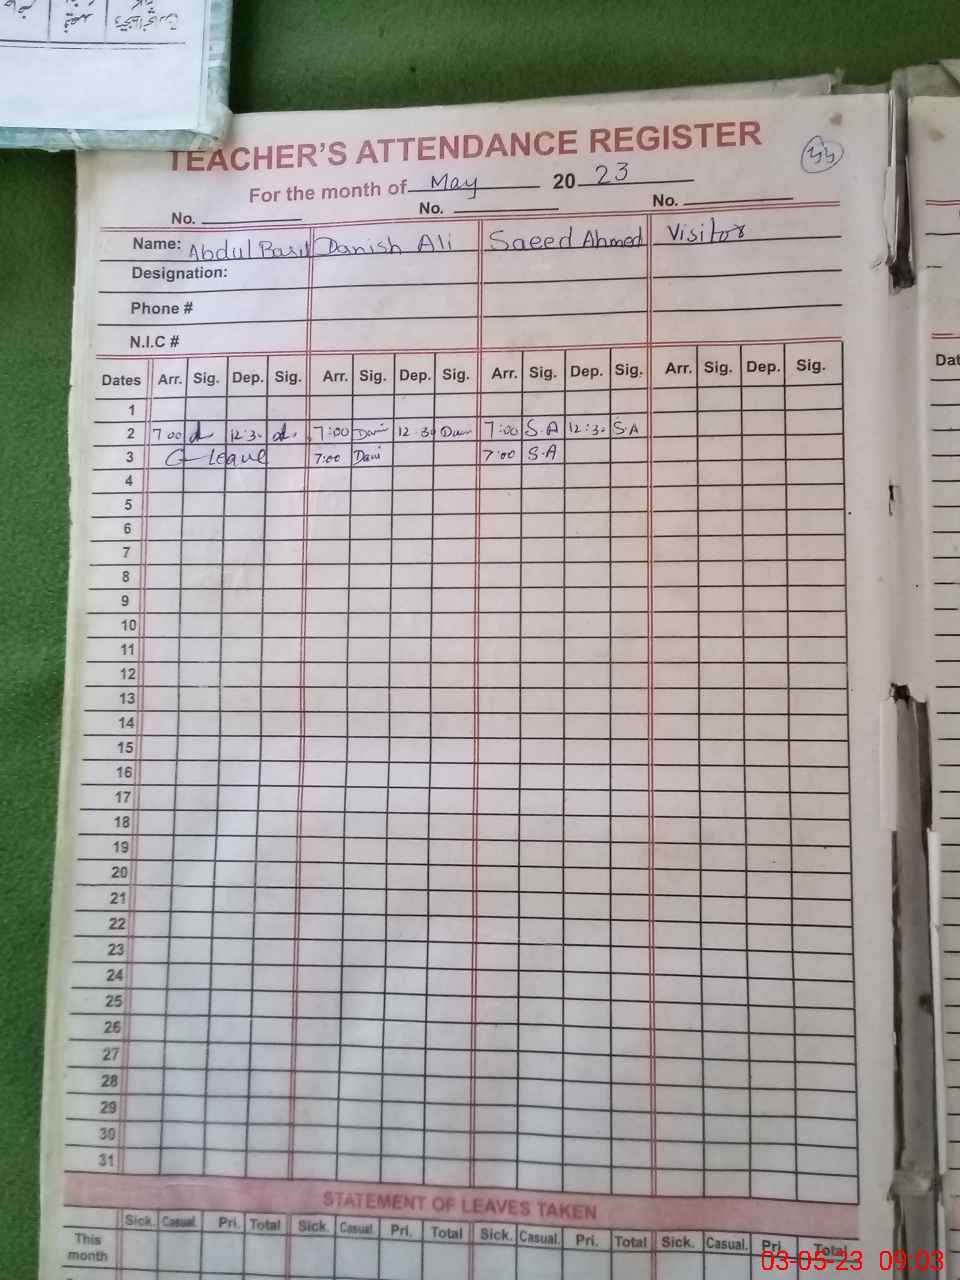 TEACHER'S ATTENDANCE REGISTER
For the month of May 2023
No. No. No.
Name: Abdul Basit Danish Ali Saeed Ahmed Visitor
Designation:
Phone #
N.I.C #
Dates Arr. Sig. Dep. Sig. Arr. Sig. Dep. Sig. Arr. Sig. Dep. Sig. Arr. Sig. Dep. Sig.
1
2 7:00 12:30 7:00 Dani 12:30 Dani 7:00 S.A 12:30 S.A
3 C-leave 7:00 Dani 7:00 S.A
4
5
6
7
8
9
10
11
12
13
14
15
16
17
18
19
20
21
22
23
24
25
26
27
28
29
30
31
STATEMENT OF LEAVES TAKEN
Sick. Casual. Pri. Total Sick. Casual. Pri. Total Sick. Casual. Pri. Total Sick. Casual. Pri. Total
This
month
03-05-23 09:03